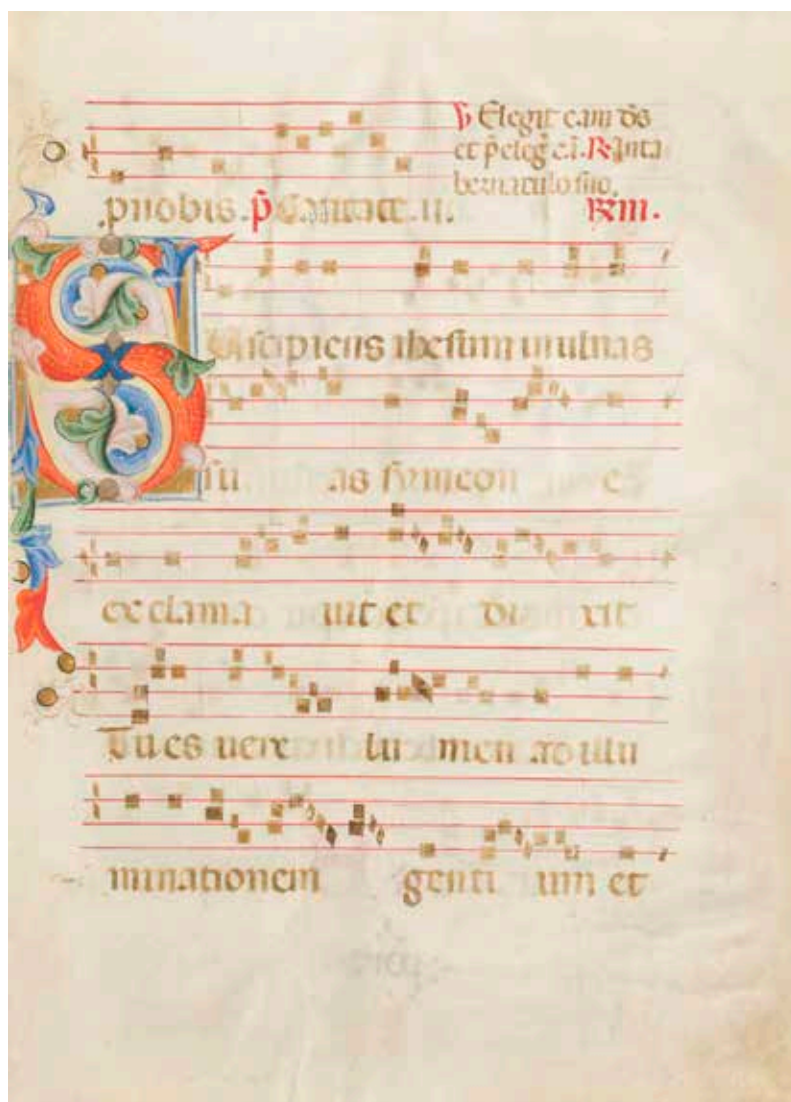 ℣ Elegit eam d̄s
et p̄eleg̃ eā. ℟ Inta
bernaculo suo.
.pnobis. p̄s̄ Cantate. ii. ℟m.
Suscipiens ihesum in ulnas
su as symeon e
ex clama uit et di xit
Tu es uere lu men ad illu
minationem genti um et